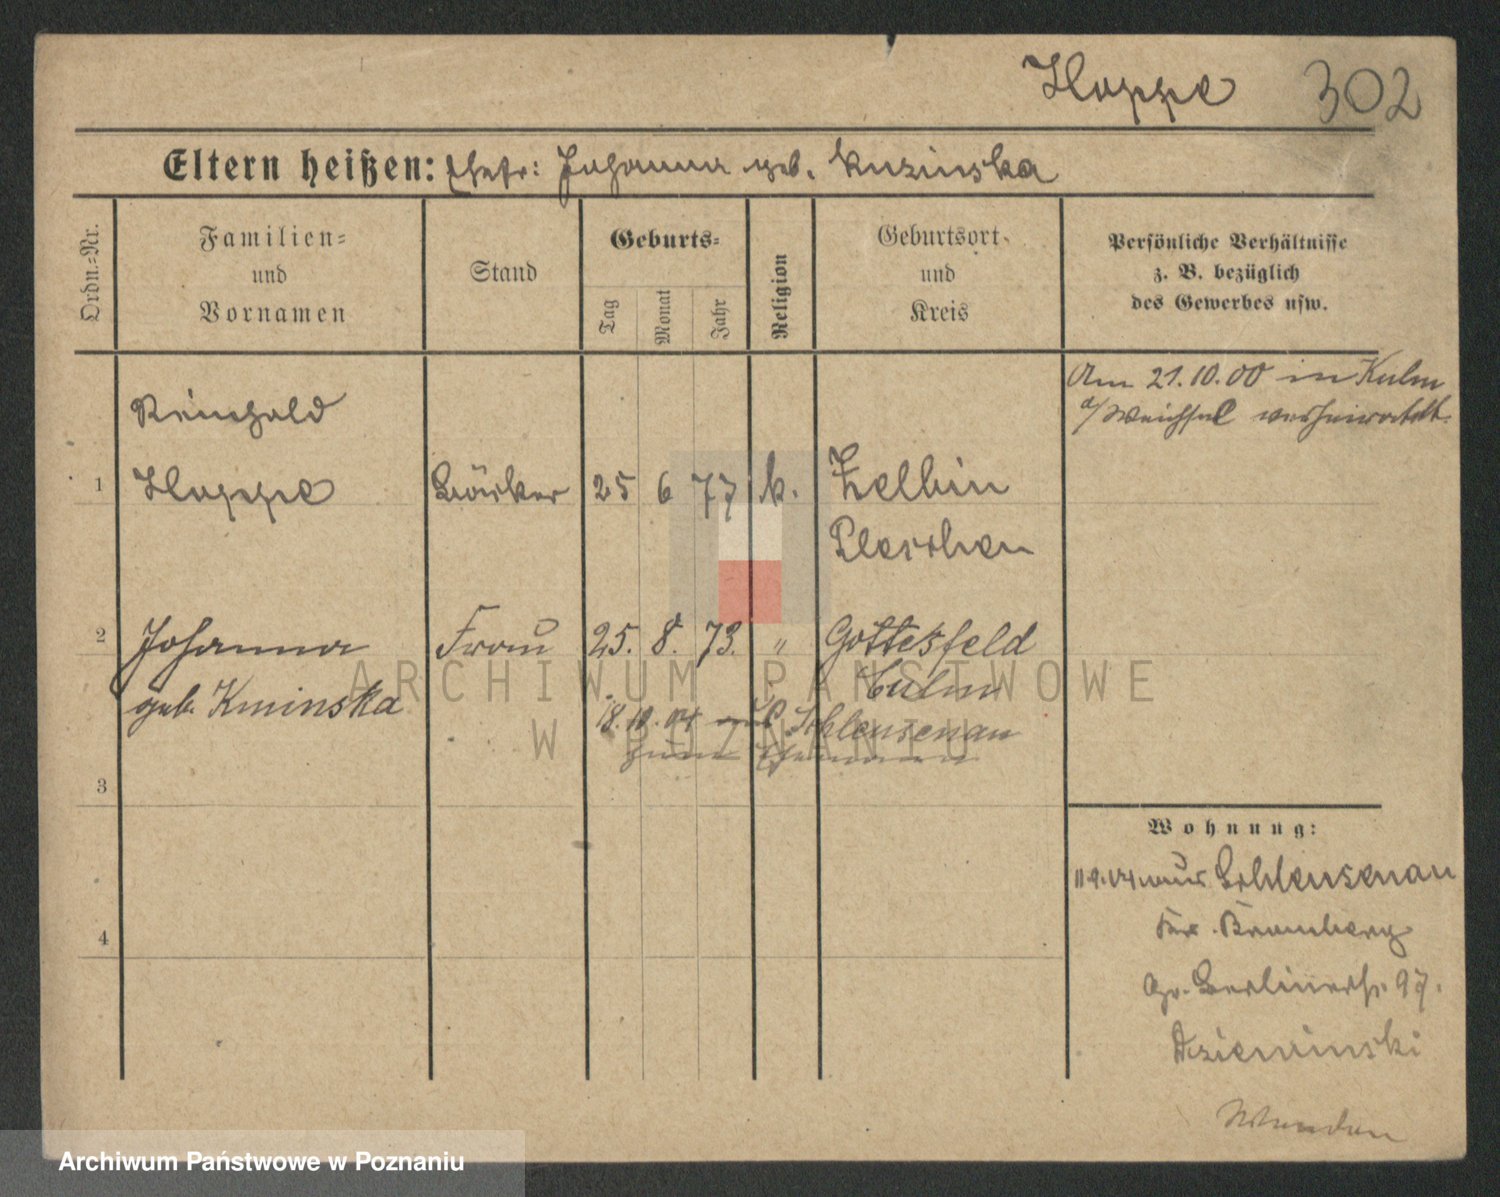 Hoppe 302
Eltern heißen: Ehefr: Johanna geb. Kuzinska
Ordn.-Nr.
Familien-
und
Vornamen
Stand
Geburts-
Tag
Monat
Jahr
Religion
Geburtsort
und
Kreis
Persönliche Verhältnisse
z. B. bezüglich
des Gewerbes usw.
Am 21.10.00 in Kulm
a/Weichsel verheiratet
Reinhold
1 Hoppe Bäcker 25 6 77 k.
Pleschen
2 Johanna Frau 25. 8. 73. " Gottesfeld
geb. Kminska Culm
18. 10. 04 Schleusenau
zum Ehemann
3
4
Wohnung:
Schleusenau
Krs. Bromberg
Gr. Berlinerstr. 97.
ARCHIWUM PAŃSTWOWE
W POZNANIU
Archiwum Państwowe w Poznaniu